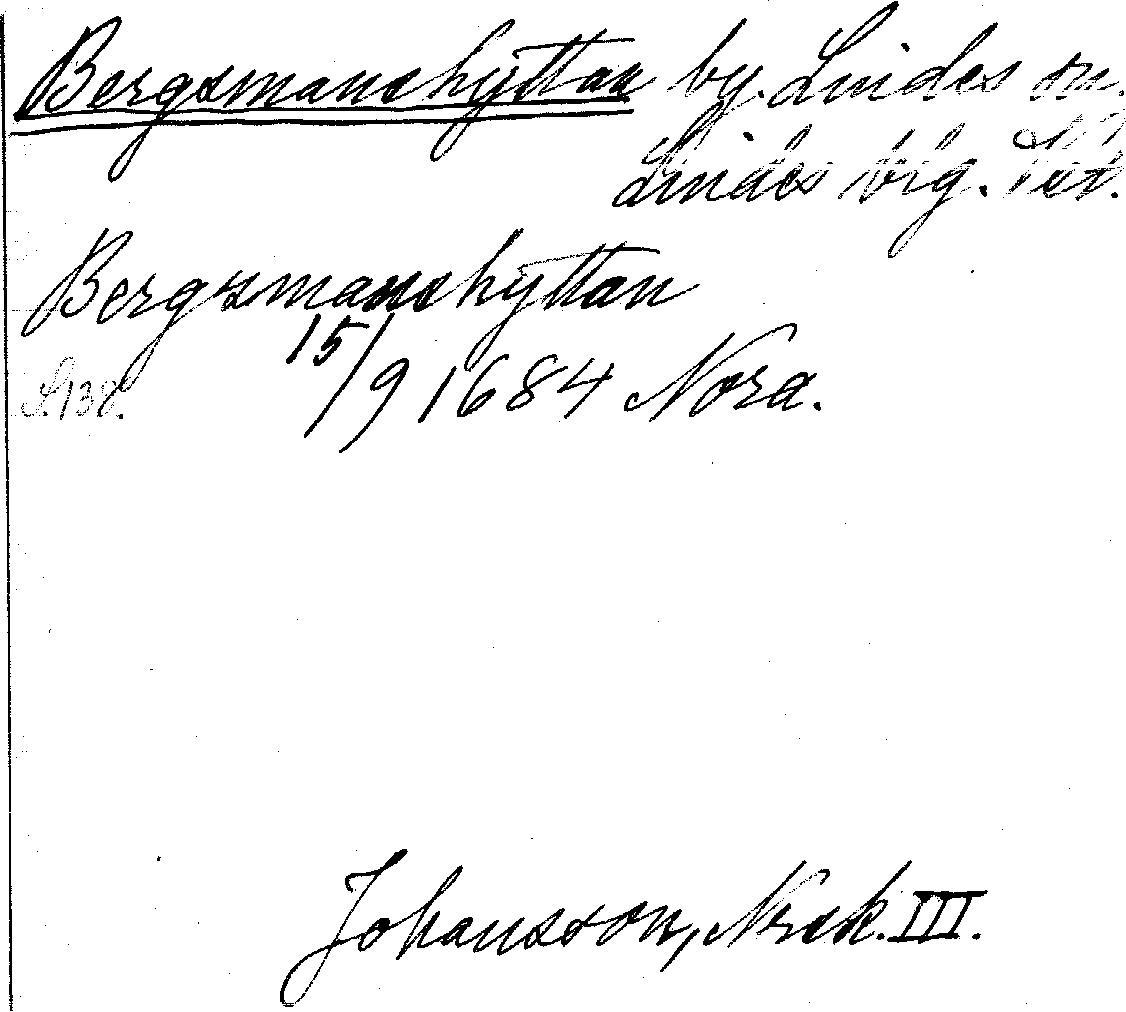 Bergsmanshyttan by. Lindes sn.
Lindes brg. Vst.
Bergsmanshyttan
15/9 1684 Nora.
S. 138.
Johansson, Nrsk. III.